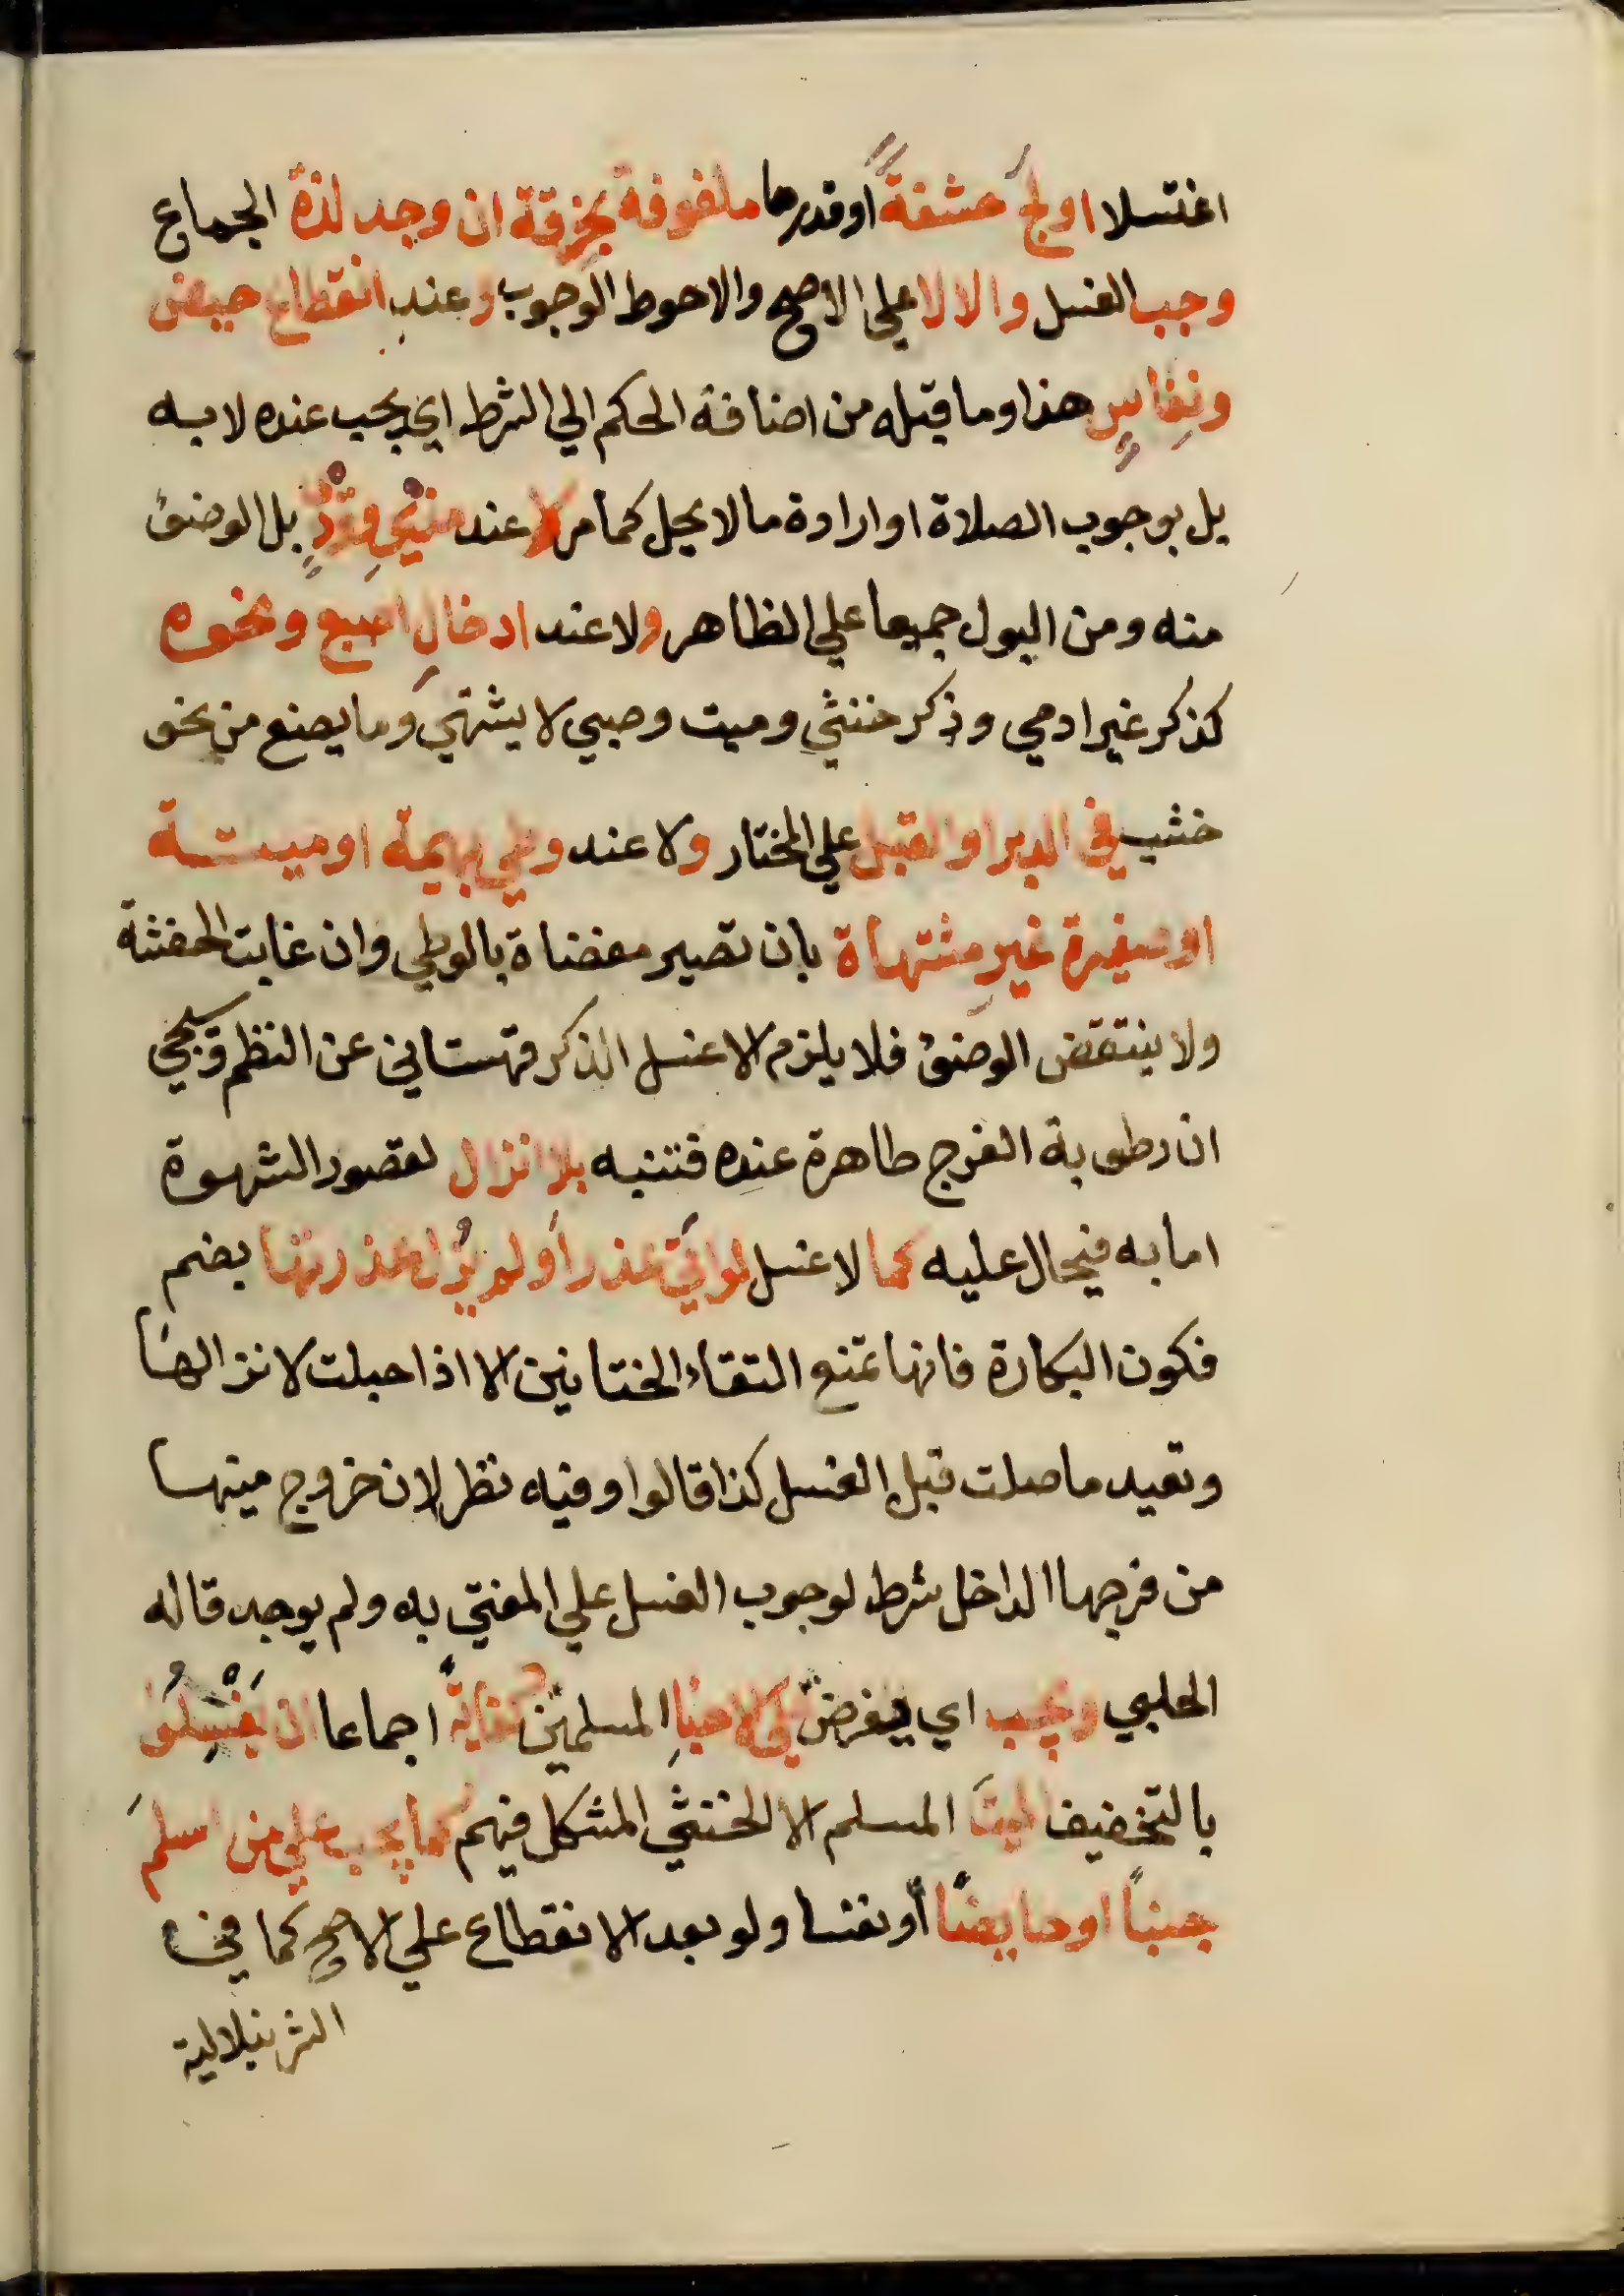 اغتسلا اولج حشفةً اوقدرها ملفوفة بخرقة ان وجد لذة الجماع
وجب الغسل والا لا علي الاصح والاحوط الوجوب وعند انقطاع حيض
ونفاسٍ هذا وما قبله من اضافة الحكم الي الشرط اي يجب عنده لا به
بل بوجوب الصلاة او ارادة ما لا يحل كما مر لا عند مذيٍ وودْيٍ بل الوضوء
منه ومن البول جميعا علي الظاهر ولا عند ادخالِ اصبع ونحوه
كذكر غير ادمي وذكر خنثي وميت وصبي لا يشتهي وما يصنع من نحو
خشب في الدبر او القبل علي المختار ولا عند وطي بهيمة او ميتة
او صغيرة غيرِ مشتهاة بان تصير مفضاة بالوطي وان غابت الحفشة
ولا ينتقض الوضوء فلا يلزم الا غسل الذكر قهستاني عن النظم وسيجي
ان رطوبة الفرج طاهرة عنده فتنبه بلا انزال لقصور الشهوة
اما به فيحال عليه كما لا غسل لو اتيَ عذراءَ ولم يزُل عذرتها بضم
فكون البكارة فانها تمنع التقاء الختانين الا اذا حبلت لانزالها
وتعيد ما صلت قبل الغسل كذا قالوا وفيه نظر لان خروج منيها
من فرجها الداخل شرط لوجوب الغسل علي المفتي به ولم يوجد قاله
الحلبي ويجب اي يفرض علي الاحياءِ المسلمين كفايةً اجماعا ان يَغْسِلُوا
بالتخفيف الميتَ المسلم الا الخنثي المشكل فيهم كما يجب علي من اسلمَ
جنباً او حايضًا أو نفسا ولو بعد الانقطاع علي الاصح كما في
الشرنبلالية